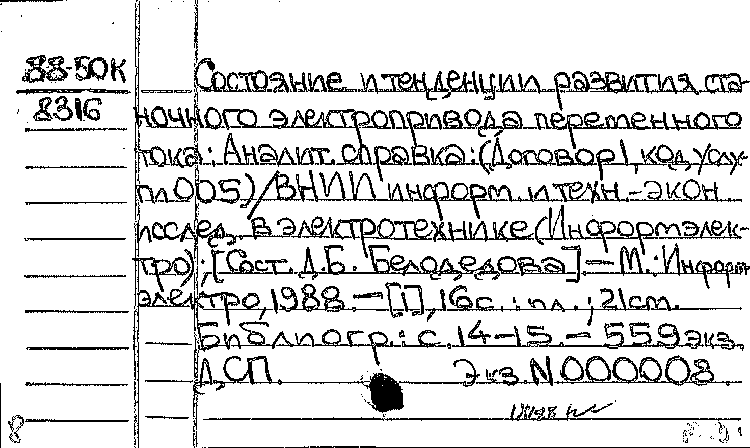 88-50К
8316
Состояние и тенденции развития ста-
ночного электропривода переменного
тока: Аналит. справка: (Договор 1, код услу-
ги 005)/ВНИИ информ. и техн.-экон
исслед. в электротехнике (Информэлек-
тро); [Сост. Д.Б. Белодедова].—М.: Информ
электро, 1988.—[1], 16с.: ил.; 21см.
Библиогр.: с. 14-15.— 559экз.
ДСП. Экз. N000008
8